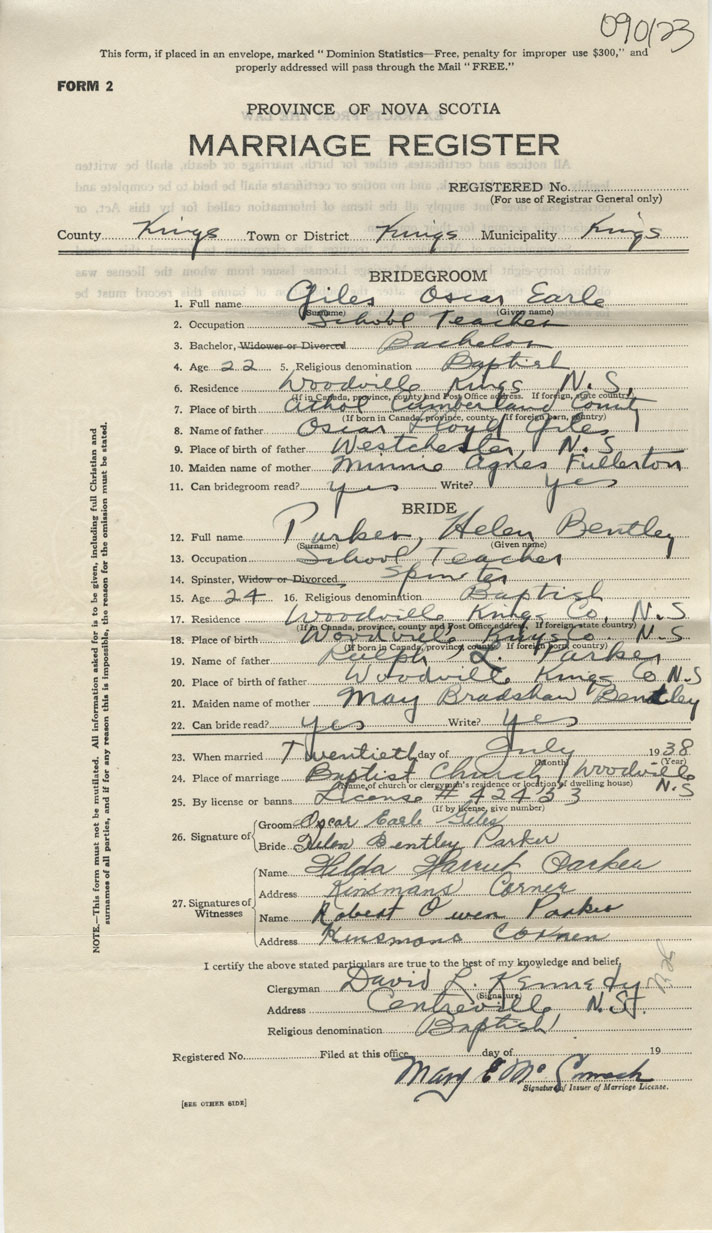 090123
This form, if placed in an envelope, marked "Dominion Statistics—Free, penalty for improper use $300," and
properly addressed will pass through the Mail "FREE."
FORM 2
PROVINCE OF NOVA SCOTIA
MARRIAGE REGISTER
REGISTERED No.
(For use of Registrar General only)
County Kings Town or District Kings Municipality Kings
BRIDEGROOM
1. Full name Giles Oscar Earle
(Surname) (Given name)
2. Occupation School Teacher
3. Bachelor, Widower or Divorced Bachelor
4. Age 22 5. Religious denomination Baptist
6. Residence Woodville Kings N.S.
(If in Canada, province, county and Post Office address. If foreign, state country)
7. Place of birth Athol Cumberland County
(If born in Canada, province, county. If foreign born, country)
8. Name of father Oscar Lloyd Giles
9. Place of birth of father Westchester N.S
10. Maiden name of mother Minnie Agnes Fullerton
11. Can bridegroom read? yes Write? yes
BRIDE
12. Full name Parker, Helen Bentley
(Surname) (Given name)
13. Occupation School Teacher
14. Spinster, Widow or Divorced Spinster
15. Age 24 16. Religious denomination Baptist
17. Residence Woodville Kings Co. N.S
(If in Canada, province, county and Post Office address. If foreign state country)
18. Place of birth Woodville Kings Co. N.S
(If born in Canada, province, county. If foreign born, country)
19. Name of father Ralph L. Parker
20. Place of birth of father Woodville Kings Co N.S
21. Maiden name of mother May Bradshaw Bentley
22. Can bride read? yes Write? yes
23. When married Twentieth day of July 1938
(Month) (Year)
24. Place of marriage Baptist Church Woodville N.S
(Name of church or clergyman's residence or location of dwelling house)
25. By license or banns License # 43453
(If by license, give number)
26. Signature of Groom Oscar Earle Giles
Bride Helen Bentley Parker
27. Signatures of Witnesses
Name Hilda Harriet Parker
Address Kinsmans Corner
Name Robert Owen Parker
Address Kinsmans Corner
I certify the above stated particulars are true to the best of my knowledge and belief.
Clergyman David L. Kennedy
(Signature)
Address Centreville N.S.
Religious denomination Baptist
Registered No. Filed at this office day of 19
Mary E Mc
Signature of Issuer of Marriage License.
[SEE OTHER SIDE]
NOTE.—This form must not be mutilated. All information asked for is to be given, including full Christian and
surnames of all parties, and if for any reason this is impossible, the reason for the omission must be stated.